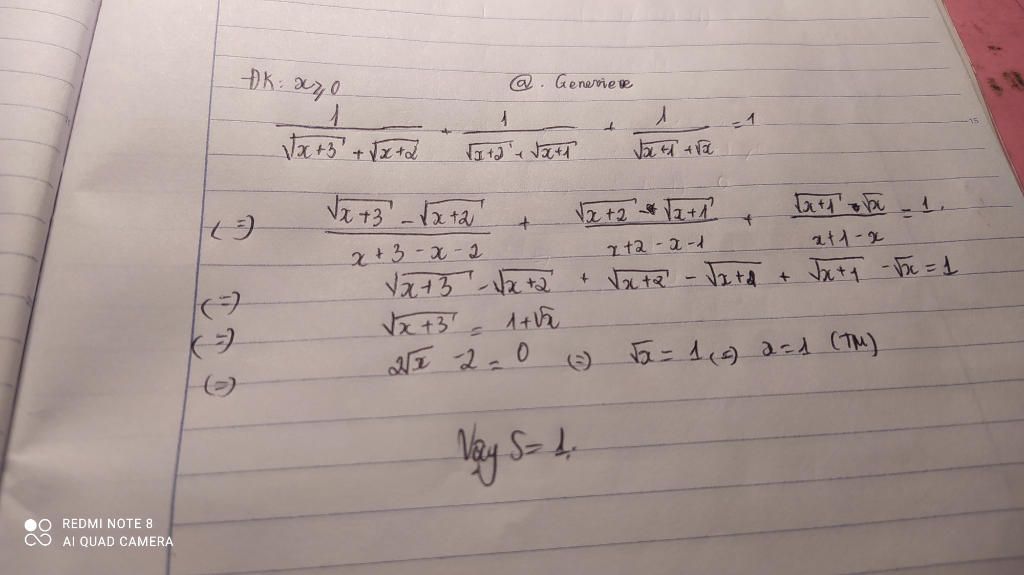 ĐK: x ≥ 0 @. Genevieve
1/(√(x+3) + √(x+2)) + 1/(√(x+2) + √(x+1)) + 1/(√(x+1) + √x) = 1
(=) (√(x+3) - √(x+2))/(x+3-x-2) + (√(x+2) - √(x+1))/(x+2-x-1) + (√(x+1) - √x)/(x+1-x) = 1.
(=) √(x+3) - √(x+2) + √(x+2) - √(x+1) + √(x+1) - √x = 1
(=) √(x+3) = 1+√x
(=) 2√x - 2 = 0 (=) √x = 1 (=) x = 1 (TM)
Vậy S = 1.
REDMI NOTE 8
AI QUAD CAMERA